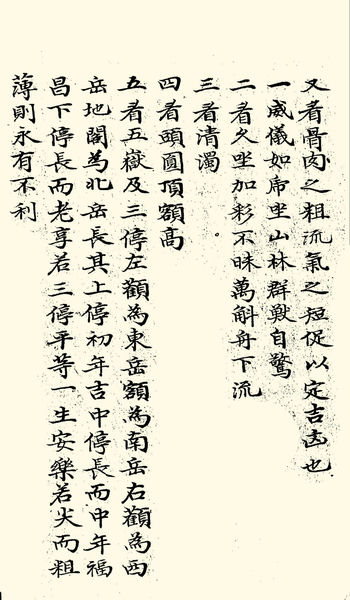 又看骨肉之粗流氣之短促以定吉凶也
一威儀如虎坐山林群獸自驚
二看久坐加彩不昧萬斛舟下流
三看清濁
四看頭圓頂額高
五看五嶽及三停左顴為東岳額為南岳右顴為西
岳地閣為北岳長其上停初年吉中停長而中年福
昌下停長而老享若三停平等一生安樂若尖而粗
薄則永有不利